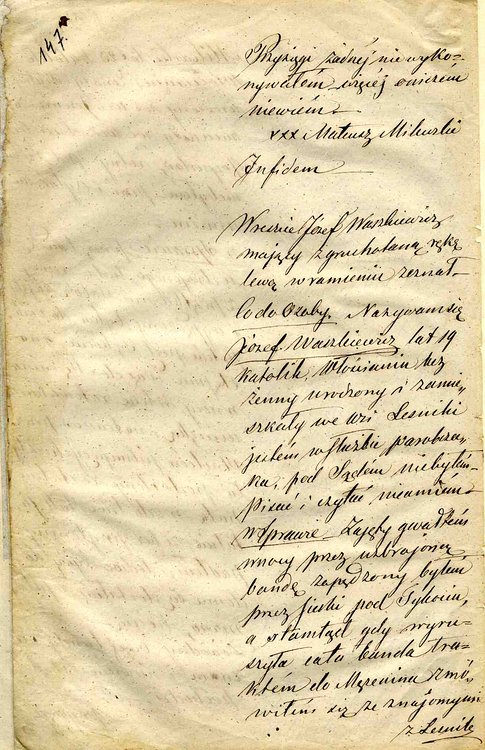 147.
Przysięgi żadnej nie wyko-
nywałem więcej o niczem
niewiem
xxx Mateusz Milewski
In fidem
Wreszcie Józef Waszkiewicz
mający zgruchotaną rękę
lewą w ramieniu zeznał
do Osoby. Nazywam się
Józef Waszkiewicz lat 19
katolik, Włościanin bez
żenny urodzony i zamie-
szkały we wsi Leśniki
jestem w służbie parobcza-
ka, pod Sądem nie byłem
Pisać i czytać nieumiem
w Sprawie. Zajęty gwałtem
w nocy przez uzbrojoną
bandę zapędzony byłem
przez Sieśki pod Tykocin,
a ztamtąd gdy wyru-
szyła cała banda tra-
ktem do Mężenina zmó-
wiłem się ze znajomymi
z Leśnik